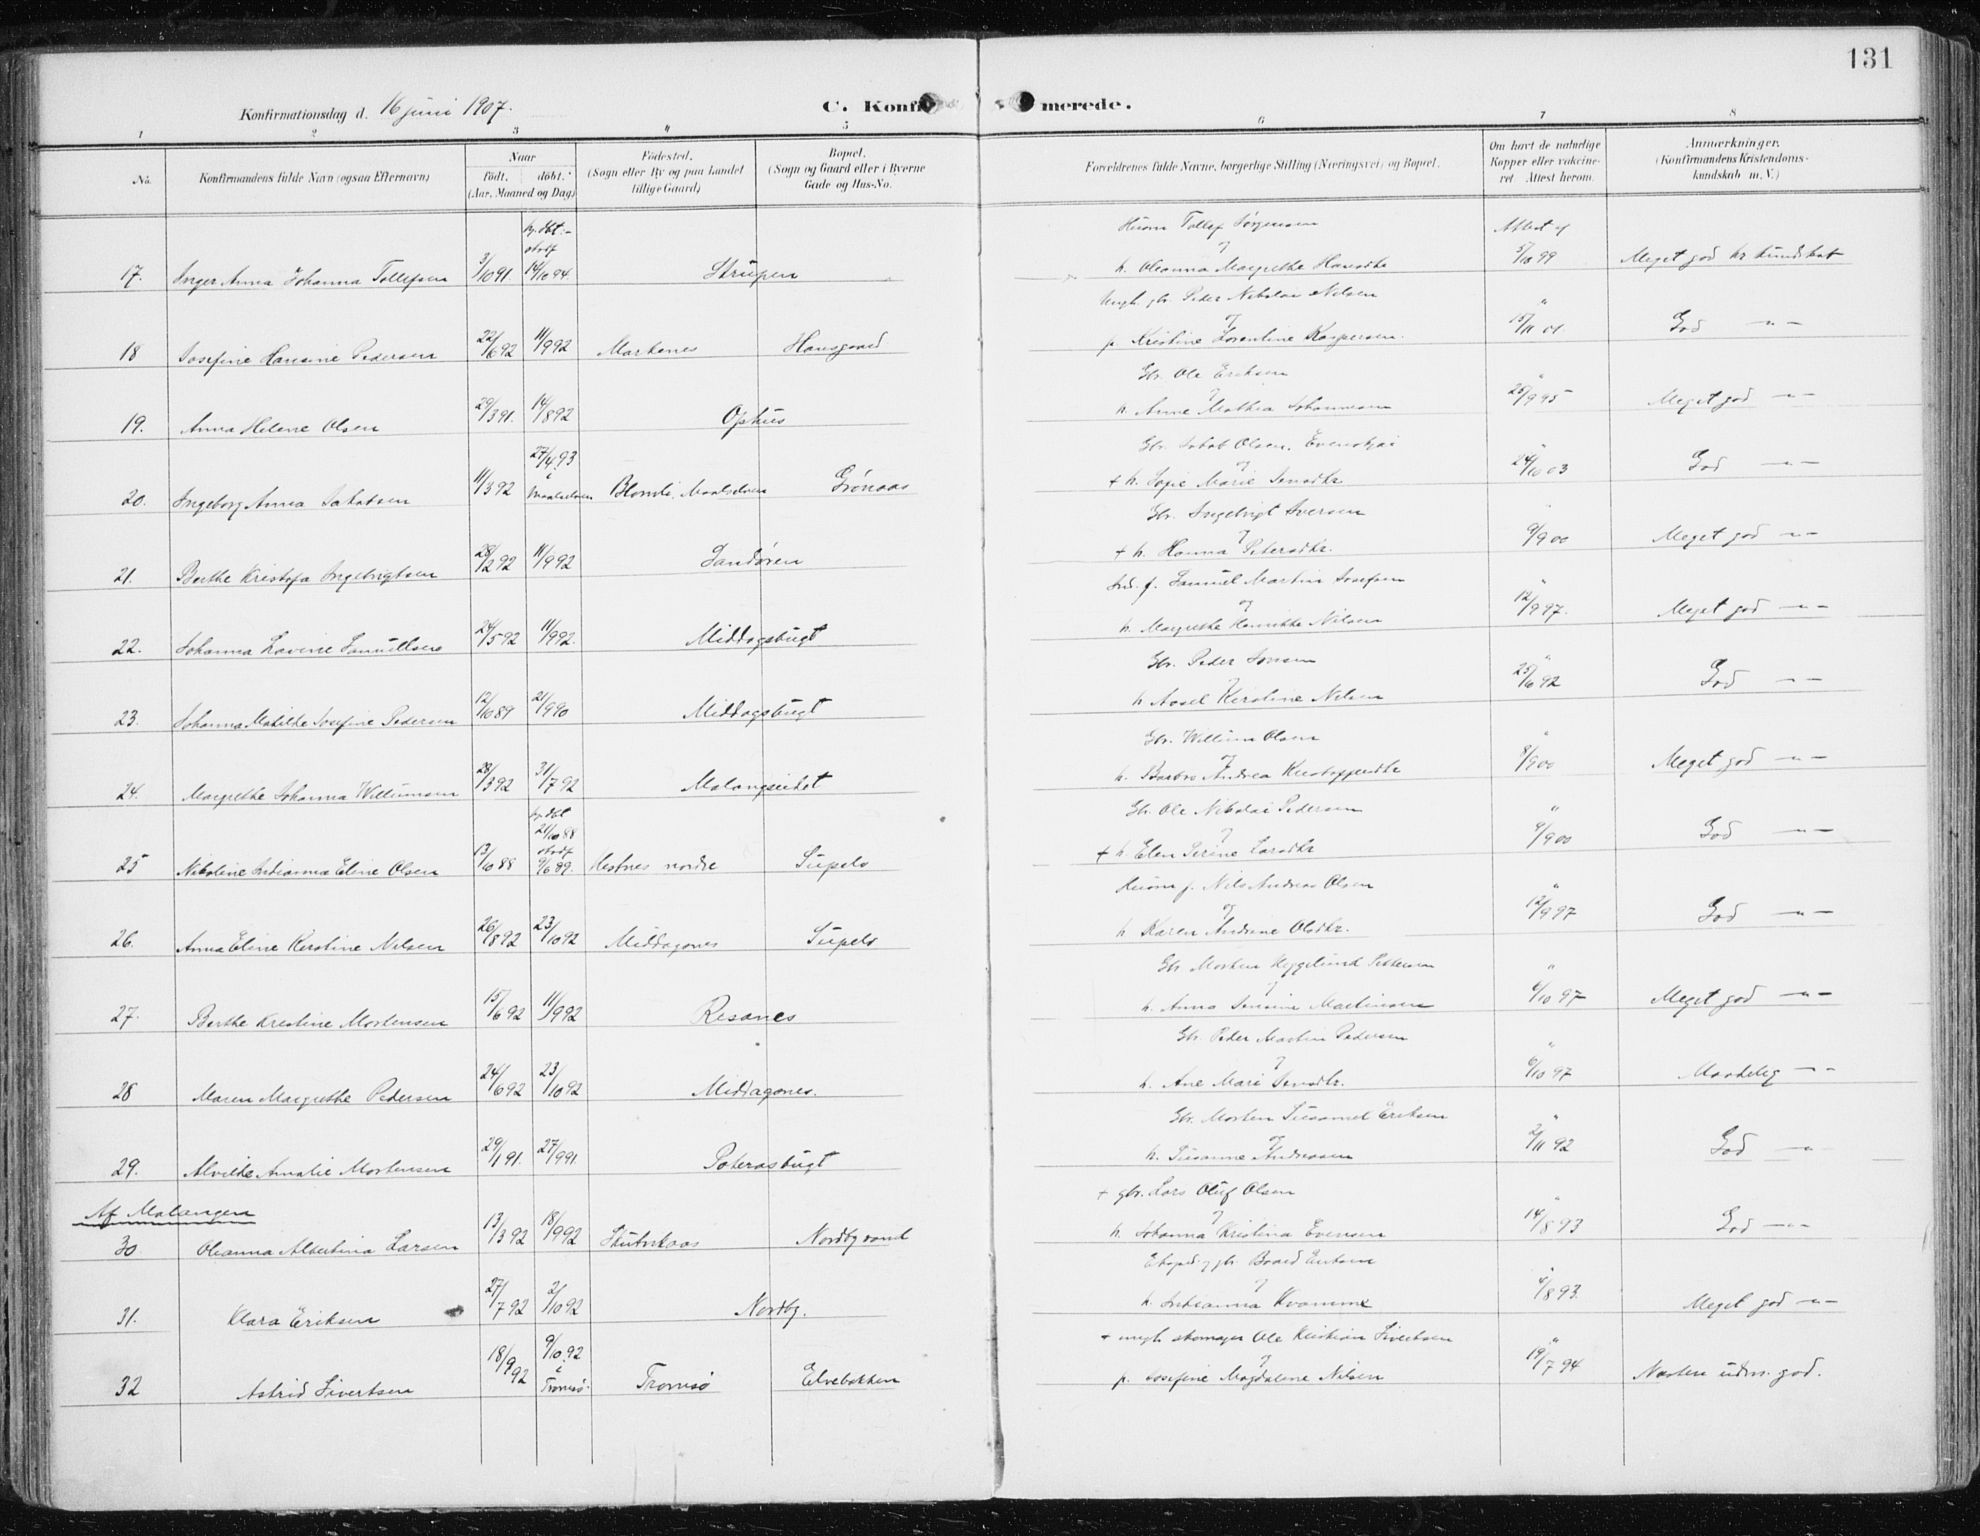 131
Konfirmationsdag d. 16 juni 1907.
C. Konfirmerede.
1 2 3 4 5 6 7 8
No.
Konfirmandens fulde Navn (ogsaa Efternavn)
Naar
födt. döbt.
(Aar, Maaned og Dag)
Födested.
(Sogn eller By og paa Landet
tillige Gaard)
Bopæl.
(Sogn og Gaard eller i Byerne
Gade og Hus-No.
Forældrenes fulde Navne, borgerlige Stilling (Næringsvei) og Bopæl.
Om havt de naturlige
Kopper eller vakcine-
ret Attest herom.
Anmærkninger.
(Konfirmandens Kristendoms-
kundskab m. V.)
17. Inger Anna Johanna Tollefsen 3/10 91 14/10 94 Strupen
Husm Tollef Sørgensen
og
h. Oleanna Margrethe Hansdtr
Attest af
5/10 99 Meget god kr kundskab
18 Josefine Hansine Pedersen 22/6 92 11/9 92 Markenes Hansgaard
Ungk. gbr. Peder Nikolai Nilsen
og
p Kristine Lorentine Kaspersen.
15/11 01 God — " —
19. Anna Helene Olsen 29/3 91. 14/8 92 Ophus
Gbr. Ole Eriksen
og
h. Anne Mathea Johannesen
25/9 95 Meget god — " —
20. Ingeborg Anna Jakobsen 11/3 92 27/4 93
i
Maalselven Blomli, Maalselven Grönaas
Gbr. Jakob Olsen,
og
+ h. Sofie Marie Jensdtr
24/10 03 God — " —
21. Berthe Kristofa Ingebrigtsen 28/2 92 11/9 92 Sandøren
Gbr. Ingebrigt Iversen
og
+ h. Hanna Petersdtr.
9/9 00 Meget god — " —
22. Johanna Lovine Samuelsen 24/5 92 11/9 92. Middagsbugt
Ind. f. Samuel Martin Josefsen
og
h. Margrethe Henrikke Nilsen
12/9 97. Meget god — " —
23. Johanna Matilde Josefine Pedersen 12/10 89 21/9 90 Middagsbugt
Gbr. Peder Jonsen
og
h Aasel Kirstine Nilsen
25/6 92 God — " —
24. Margrethe Johanna Willumsen 28/3 92 31/7 92 Malangseidet
Gbr. Willum Olsen
og
h. Barbro Andrea Kristoffersdtr
8/9 00 Meget god — " —
25 Nikoline Indianna Eline Olsen 13/10 88 21/10 88
9/6 89. Hestnes nordre Sùpelv
Gbr. Ole Nikolai Pedersen
og
+ h. Elen Serine Larsdtr
9/9 00 God — " —
26. Anna Eline Kerstine Nilsen 26/8 92 23/10 92 Middagsnes Sùpelv
Husm f. Nils Andreas Olsen
og
h Karen Andrine Olsdtr.
12/9 97 God — " —
27. Berthe Kristine Mortensen 15/6 92 11/9 92 Resanes
Gbr Morten Heggelund Pettersen
og
h. Anna Jensine Martinsen
6/10 97 Meget god — " —
28 Maren Margrethe Pedersen 24/6 92 23/10 92 Middagsnes.
Gbr. Peder Martin Pedersen
og
h. Ane Mari Jensdtr.
6/10 97 Maadelig — " —
29. Alvilde Amalie Mortensen 29/1 91. 27/9 91. Poteras bugt
Gbr. Morten Susamel Eriksen
og
h. Susanne Andreasen
2/11 92 God — " —
Af Malangen
30 Oleanna Albertina Larsen 13/3 92 18/9 92 Skutvkaas Nordby vand
+ gbr. Lars Oluf Olsen
og
h. Johanna Kristina Evensen
14/8 93 God — " —
31. Klara Eriksen 27/7 92 2/10 92 Nordby.
Eksped. og gbr. Baard Eriksen
og
h. Indianna Kvamme
4/8 93. Meget god — " —
32 Astrid Sivertsen 18/9 92 9/10 92
i
Tromsø. Tromsø Elvebakken
+ ungk. skomager Ole Kristian Sivertsen
og
p. Josefine Magdalene Nilsen
19/7 94 Næsten udm. god.